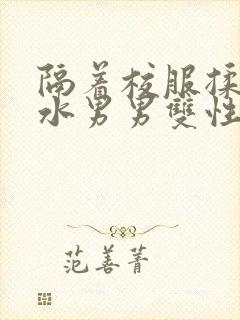 隔着校服揉
水男男雙性
范善菁